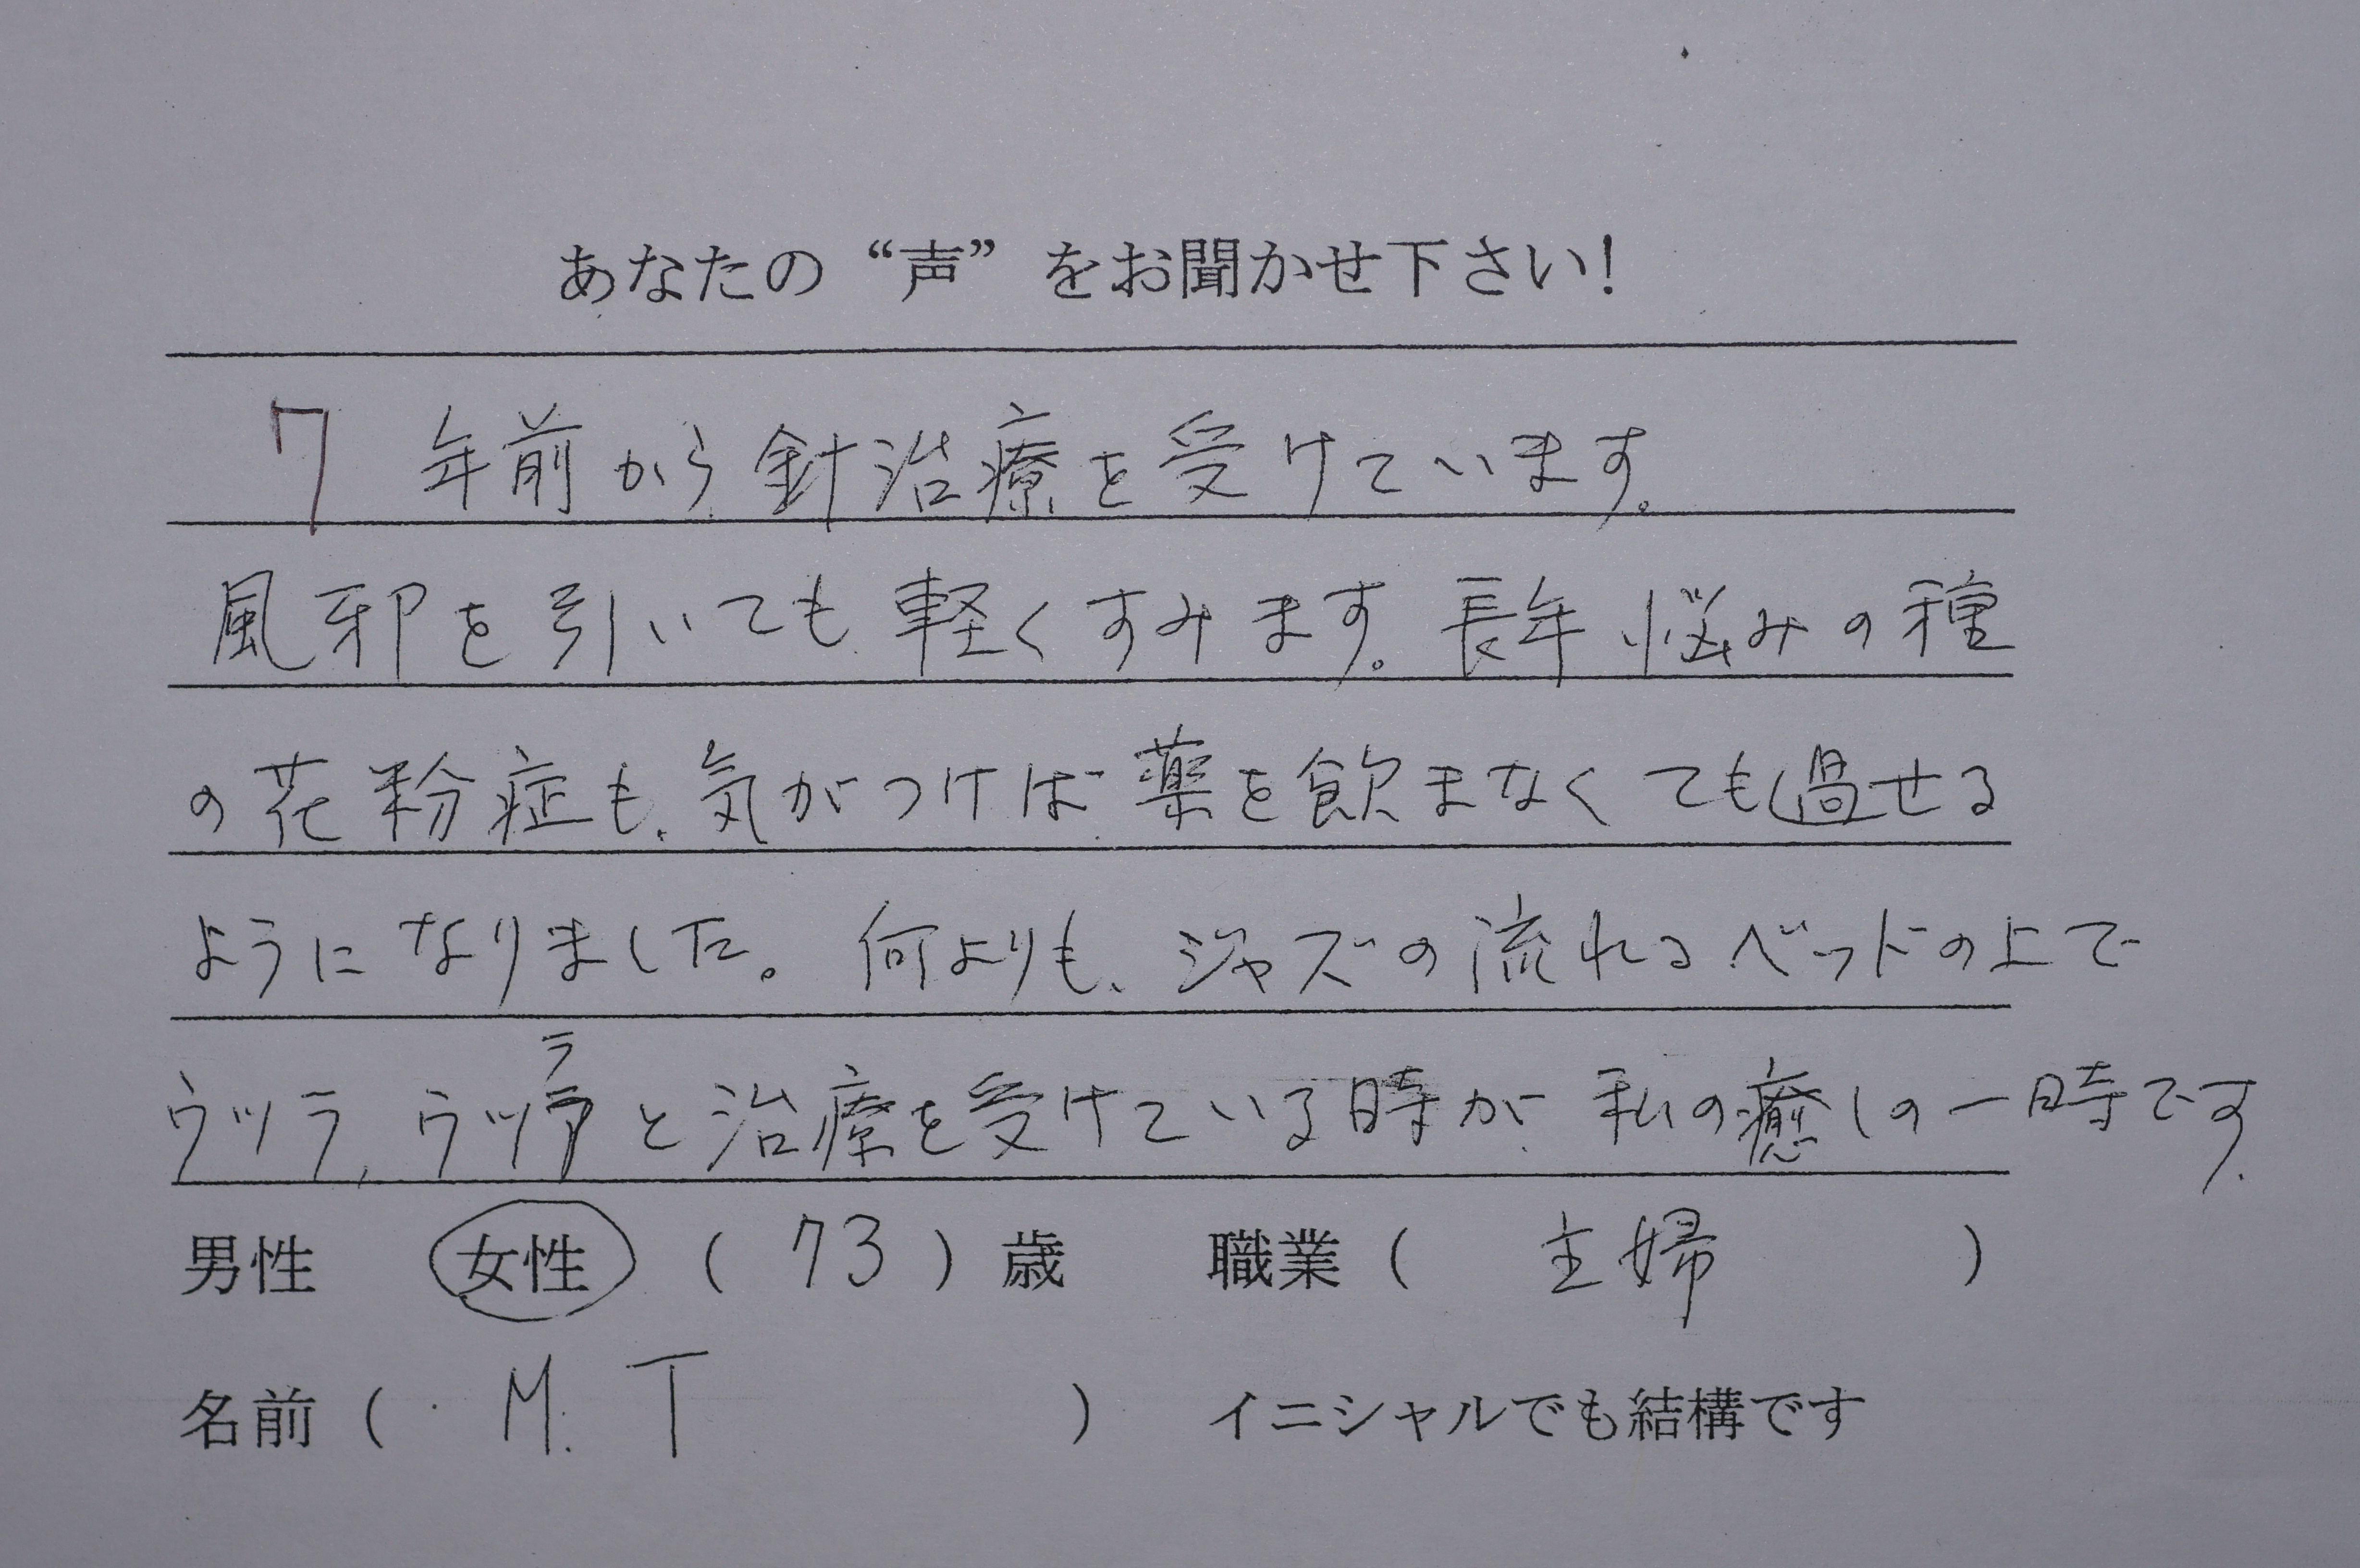 あなたの“声”をお聞かせ下さい!
7年前から針治療を受けています。
風邪を引いても軽くすみます。長年悩みの種
の花粉症も、気がつけば薬を飲まなくても過せる
ようになりました。何よりも、ジャズの流れるベッドの上で
ウツラ,ウツラと治療を受けている時が私の癒しの一時です.
男性 女性 (73)歳 職業(主婦)
名前(M.T) イニシャルでも結構です